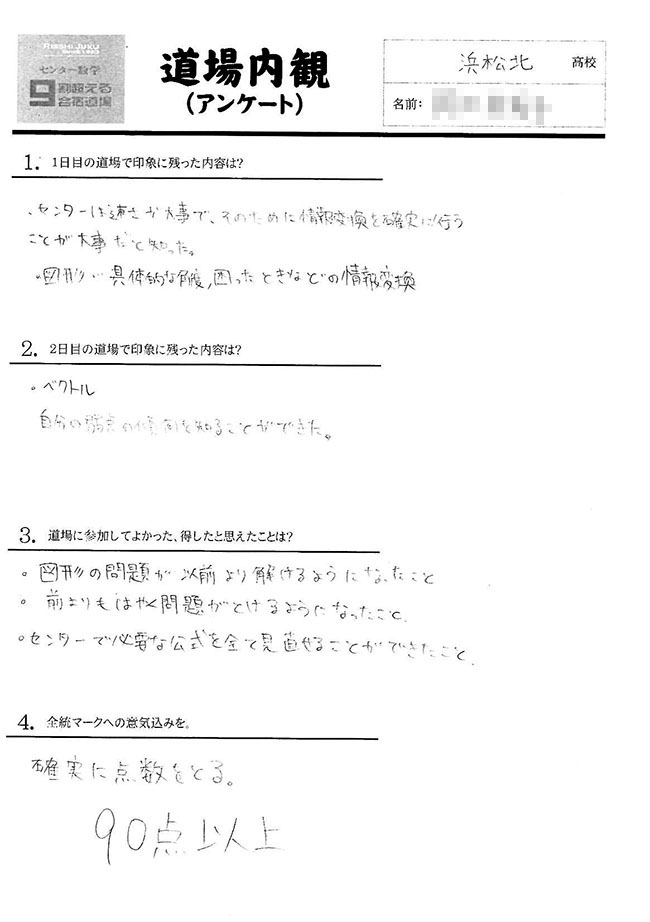 RISSHI JUKU
SINCE 1983
センター数学
9割超える
合宿道場
道場内観
(アンケート)
浜松北 高校
名前:
1. 1日目の道場で印象に残った内容は?
・センターは速さが大事で、そのために情報変換を確実に行う
ことが大事だと知った。
・図形 具体的な角度,困ったときなどの情報変換
2. 2日目の道場で印象に残った内容は?
・ベクトル
自分の弱点の傾向を知ることができた。
3. 道場に参加してよかった、得したと思えたことは?
・図形の問題が以前より解けるようになったこと
・前よりもはやく問題がとけるようになったこと.
・センターで必要な公式を全て見直せることができたこと.
4. 全統マークへの意気込みを。
確実に点数をとる。
90点以上